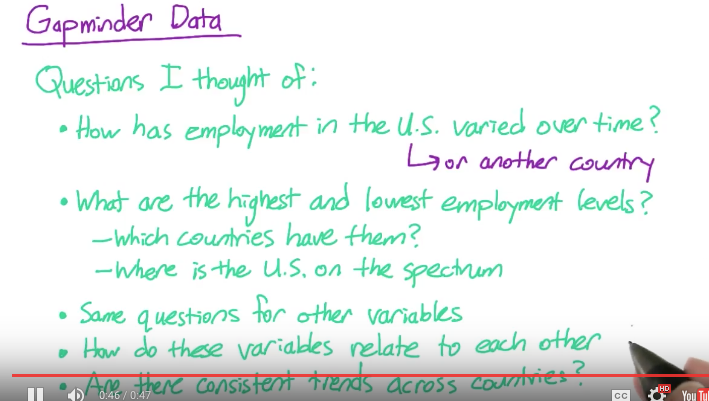 Gapminder Data
Questions I thought of:
• How has employment in the U.S. varied over time?
↳ or another country
• What are the highest and lowest employment levels?
– Which countries have them?
– Where is the U.S. on the spectrum
• Same questions for other variables
• How do these variables relate to each other
• Are there consistent trends across countries?
0:46 / 0:47
CC
HD
You Tu